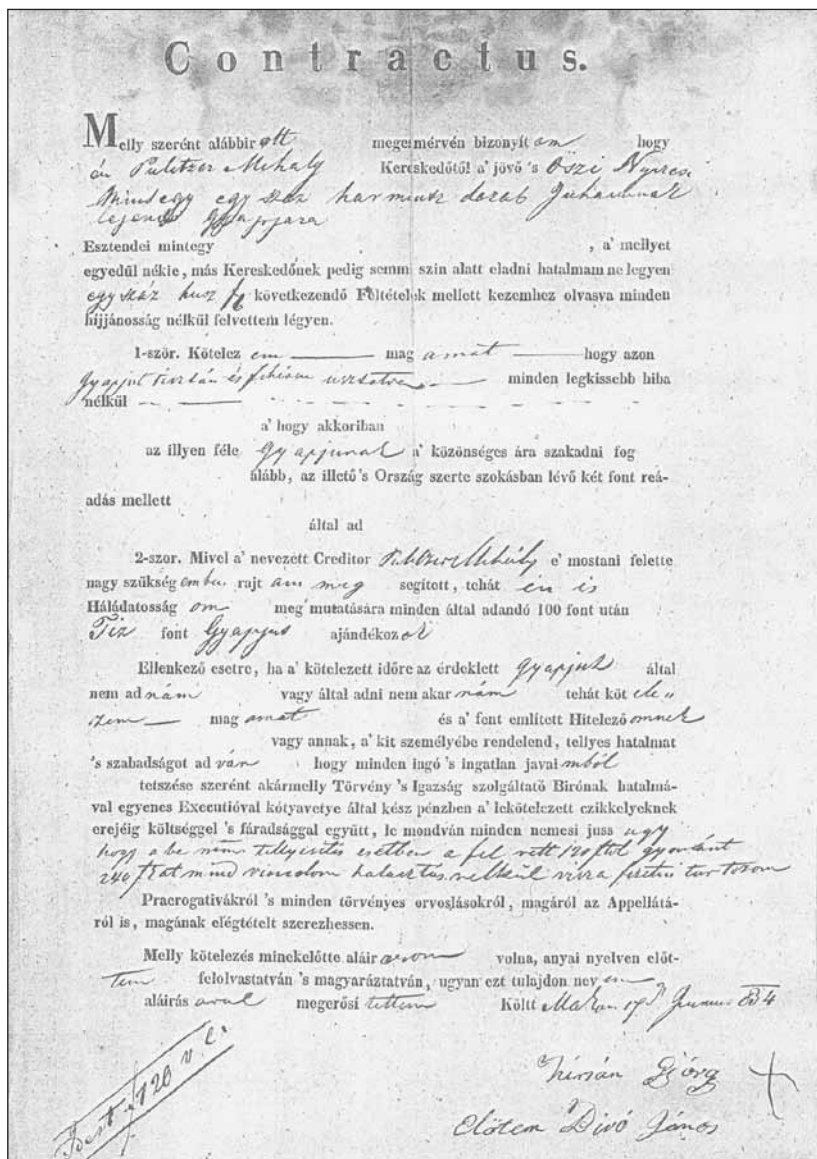 Contractus.
Melly szerént alábbirott megesmérvén bizonyítom hogy
én Pulitzer Mihály Kereskedőtől a' jövő 's Öszi Nyirési
Mintegy egy száz harmintz darab Juhaimnak
lejendő Gyapjara
Esztendei mintegy , a' mellyet
egyedűl nékie, más Kereskedőnek pedig semmi szin alatt eladni hatalmam ne legyen
egy száz husz f következendő Feltételek mellett kezemhez olvasva minden
hijjánosság nélkül felvettem légyen.
1-ször. Kötelezem magamat hogy azon
Gyapjut tisztán és fehéren usztatva minden legkissebb hiba
nélkül
a' hogy akkoriban
az illyen féle Gyapjunak a' közönséges ára szakadni fog
álább, az illető 's Ország szerte szokásban lévő két font reá-
adás mellett
által ad
2-szor. Mivel a' nevezett Creditor Pulitzer Mihály e' mostani felette
nagy szükségemben rajtam meg segített, tehát én is
Háládatosságom meg mutatására minden által adandó 100 font után
Tiz font Gyapjus ajándékozok
Ellenkező esetre, ha a' kötelezett időre az érdeklett gyapjuk által
nem adnám vagy által adni nem akarnám tehát köt ele„
zem magamat és a' fent említett Hitelezőmnek
vagy annak, a' kit személyébe rendelend, tellyes hatalmat
's szabadságot adván hogy minden ingó 's ingatlan javaimból
tetszése szerént akármelly Törvény 's Igazság szolgáltató Birónak hatalmá-
val egyenes Executióval kótyavetye által kész pénzben a' lekötelezett czikkelyeknek
erejéig költséggel 's fáradsággal együtt, le mondván minden nemesi juss ugy
hogy a be nem tellyesités esetben a fel vett 120 ftol gyománt
240 ftat mind vissza fizetni tartozom
Praerogativákról 's minden törvényes orvoslásokról, magáról az Appellátá-
ról is, magának elégtételt szerezhessen.
Melly kötelezés minekelőtte aláirasom volna, anyai nyelven előt-
tem felolvastatván 's magyaráztatván, ugyan ezt tulajdon nevem
aláirásaval megerősitettem Költt Makon Junius
120 v. c.
Györg
Elötem Divó János